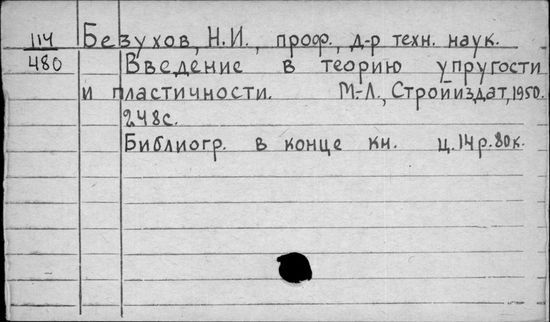 114 Безухов, Н.И., проф., д-р техн. наук.
480 Введение в теорию упругости
и пластичности. М.-Л., Стройиздат, 1950.
248с.
Библиогр. в конце кн. ц.14р.80к.